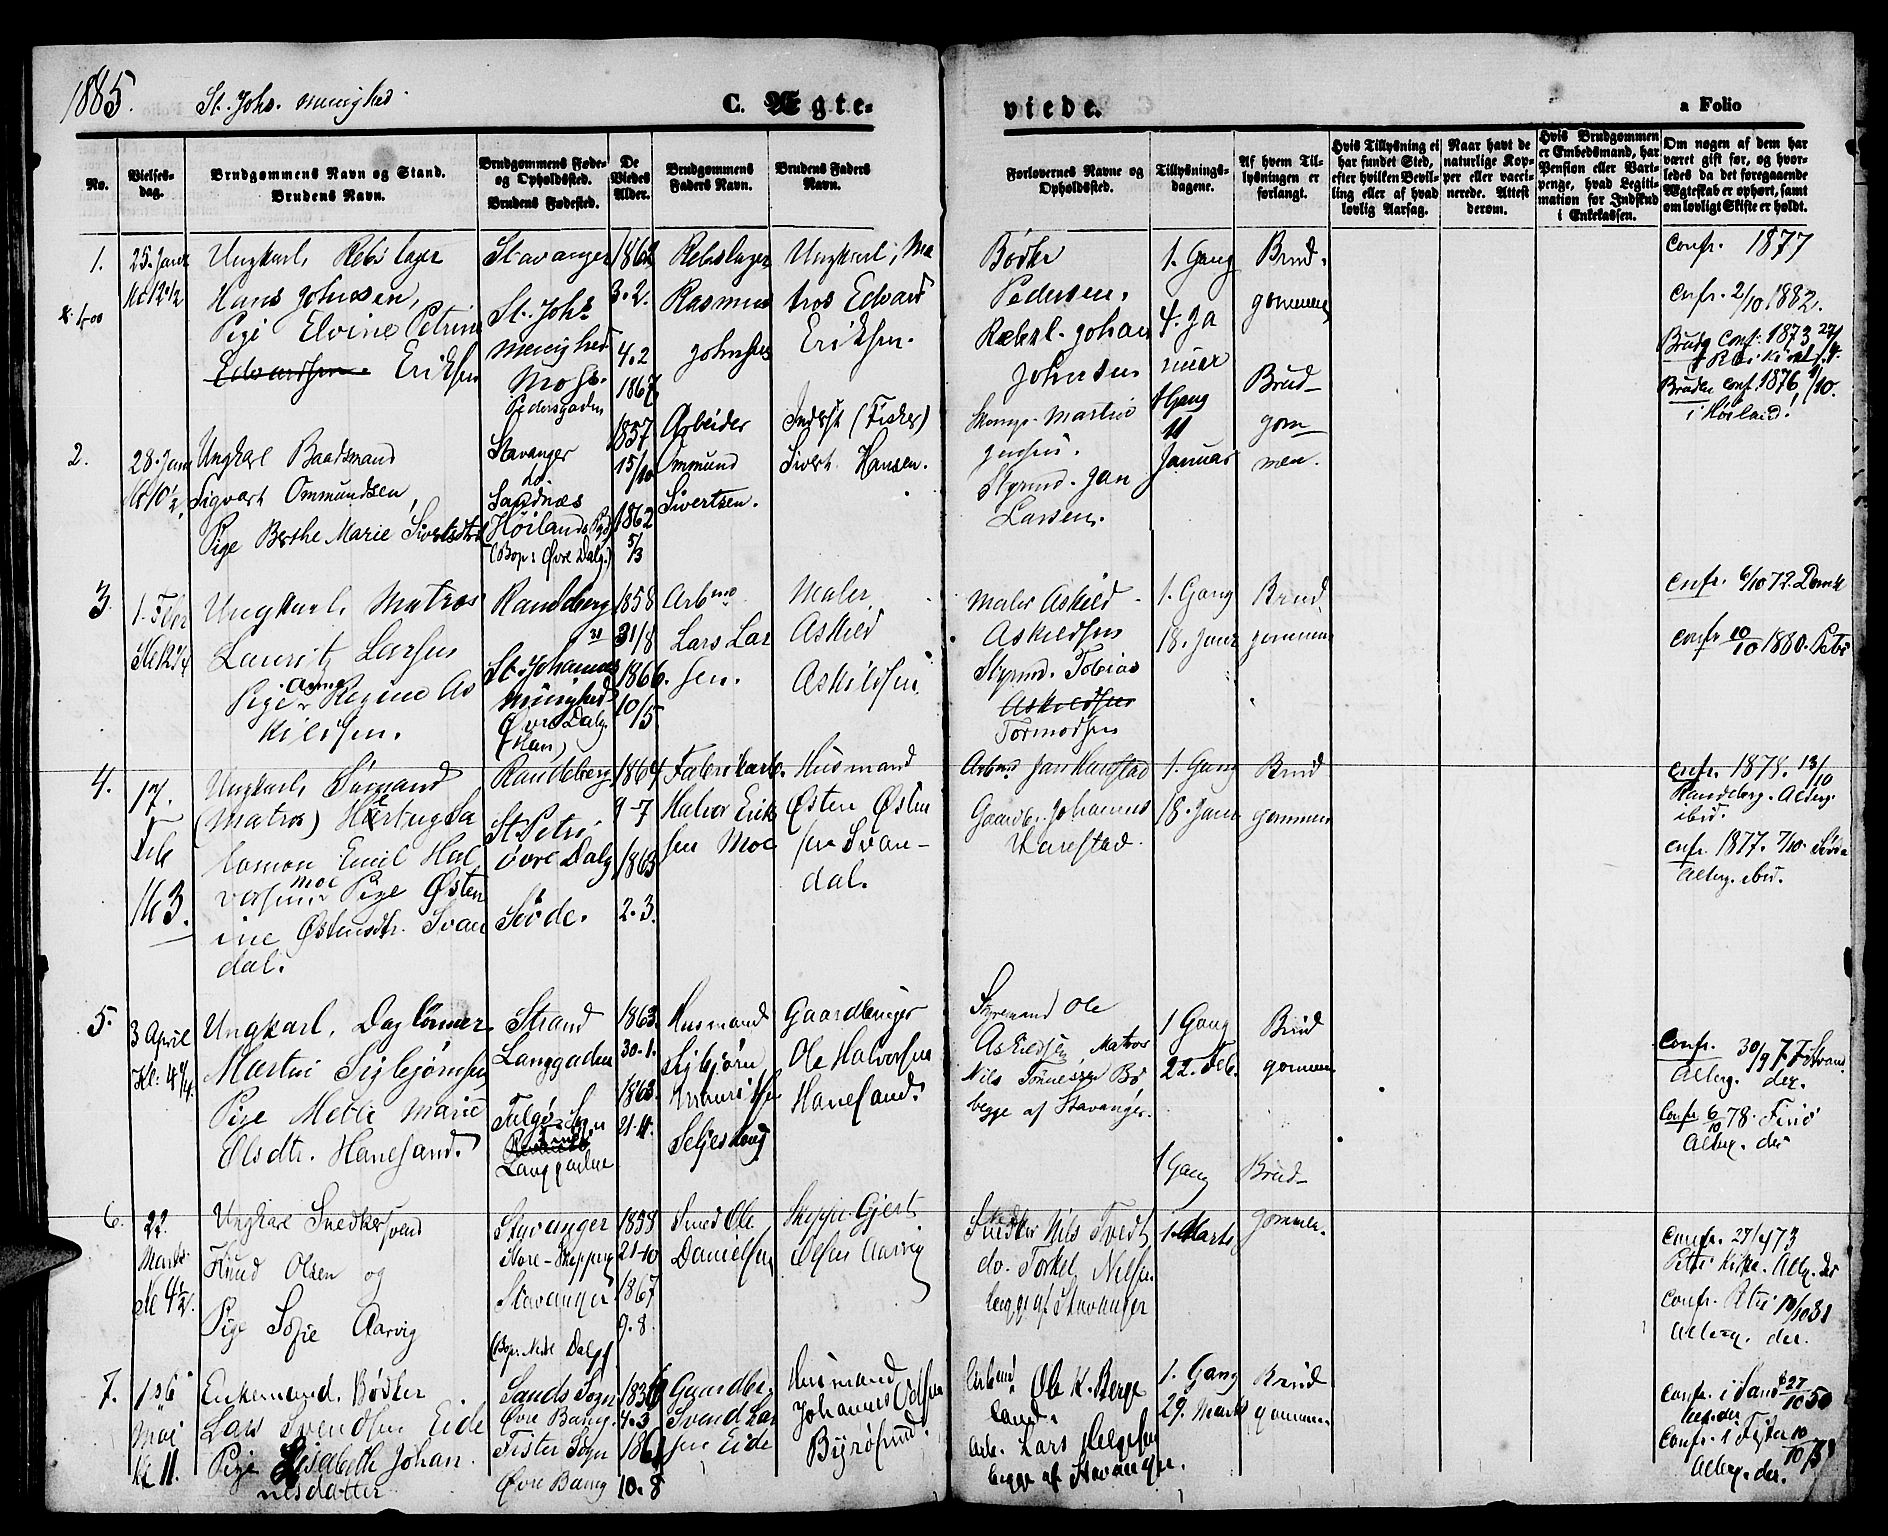 1885. St. Johs. menighed
C. Ægte- viede.
a Folio
No.
Vielses-
dag.
Brudgommens Navn og Stand.
Brudens Navn.
Brudgommens Føde-
og Opholdssted.
Brudens Fødested.
De
Viedes
Alder.
Brudgommens
Faders Navn.
Brudens Faders
Navn.
Forlovernes Navne og
Opholdssted.
Tillysnings-
dagene.
Af hvem Til-
lysningen er
forlangt.
Hvis Tillysning ei
har fundet Sted,
efter hvilken Bevil-
ling eller af hvad
lovlig Aarsag.
Naar havt de
naturlige Kop-
per eller vacci-
nerede. Attest
derom.
Hvis Brudgommen
er Embedsmand, har
Pension eller Vart-
penge, hvad Legiti-
mation for Indskud
i Enkekassen.
Om nogen af dem har
været gift før, og hvor-
ledes da det foregaaende
Ægteskab er ophørt, samt
om lovligt Skifte er holdt.
1.
25. Janr
Kl 12 1/2
Ungkarl, Rebslager
Hans Johnsen,
Pige Elvine Petrine
Edvardsen. Eriksen
Stavanger
St. Johs
menighed
Pedersgaden
1862
3.2.
4.2
1867
Rebslager
Rasmus
Johnsen
Ungkarl, Ma
tros Edvard
Eriksen.
Bødker
Pedersen.
Rebsl. Johan
Johnsen
1. Gang
4. Ja
nuar
Brud-
gommen
Confr. 1877
Cnfr. 2/10 1882.
2.
28. Janr
Kl 10 1/2.
Ungkarl Baadsmand
Sigvart Ommundsen,
Pige Berthe Marie Sivertsdtr
Stavanger
Sandnæs
Høilands Pgd
(Bop: Øvre Dalg.)
1857
15/10
1862
5/3
Arbeider
Ommund
Sivertsen.
Inderst (Fisker)
Sivert Hansen.
Martin
Jensen.
Styrmd. Jan
Larsen.
1 Gang
11
Januar
Brud-
gom-
men.
Brudg Conf. 1873
Bruden conf. 1876, 1/10.
i Høiland.
3.
1. Febr
Kl 12 1/4
Ungkarl, Matros
Lauritz Larsen
Pige Anne Regine As
kildsen.
Randeberg
St. Johannes
menighed
Øvre Dalg.
1858
31/8
1866.
10/5
Arbmd
Lars Lar
sen.
Maler
Askild
Askildsen
Maler Askild
Askildsen
Styrmd. Tobias
Askildsen
Tormodsen
1. Gang
18. Janr
Brud
gommen
Cnfr. 6/10 72. Domk
Confr 10/10 1880. Petri
4.
17.
Feb
Kl 3.
Ungkarl, Sømand
(Matros) Hartvig Sa
lomon Emil Hal
vorsen Moe Pige Østen
ine Østensdtr. Svan
dal.
Randeberg
St Petri
øvre Dalg
Søvde.
1864
9-7
1863
2.3.
Fabrikarb.
Halvor Erik
sen Moe
Husmand
Østen Østen
sen Svan-
dal.
Arbmd Jan Harestad
Gaardbr. Johannes
Harestad.
1. Gang
18. Janr
Brud
gommen
Cnfr. 1878. 13/10
Randeberg. Alderg.
ibid.
Cnfr. 1877. 7/10. Søvde
Alberg. ibid.
5.
3 April
Kl. 4 3/4.
Ungkarl, Daglønner
Martin Sigbjørnsen
Pige Mette Marie
Olsdtr. Hanesand.
Strand
Langgaden
Langgaden
1863.
30.1.
1863.
21.11.
Husmand
Sigbjørn
Gaardbruger
Ole Halvorsen
Hanesand.
Styrmand Ole
Askildsen, Matros
Nils Tønnessen Bø
begge af Stavanger.
1 Gang
22. Feb.
Brud
gommen
Confr. 30/9 7. Strand
Alberg. der.
Confr 6/10 78. Finø
Alberg. der
6.
22.
Marts.
Kl 4 1/2.
Ungkarl Snedkersvend
Knud Olsen og
Pige Sofie Aarvig
Stavanger
Store-Skipperg
Stavanger
(Bop: Nedr Dalg)
1858
21-10
1867
9.8.
Smed Ole
Danielsen
Skipper Gjert
Olsen Aarvig
Snedker Nils Tvedt
do. Torkel Nilsen
begge af Stavanger
1 Gang
1. Marts
Brud-
gommen.
Confr. 27/4 73
Petri Kirke. Alberg. der
Confr. Petri 10/10 81
Alberg. der.
7.
1ste
Mai
Kl 11.
Enkemand. Bødker
Lars Svendsen Eide
Pige Lisabeth Johan
nesdatter
Sands Sogn
Øvre Baneg.
Fister Sogn
Øvre Baneg
1836
4.3
1861
10.8
Gaardbr.
Svend Lar
sen Eide
Husmand
Johannes Odsen
Byrøsund.
Arbmd. Ole K. Berge
land.
Arb. Lars Helgesen
begge af Stavanger.
1. Gang
29. Marts
Brud
gommen.
Confr. i Sand 27/10 50
Confr. i Fister 10/10
Alberg. der.